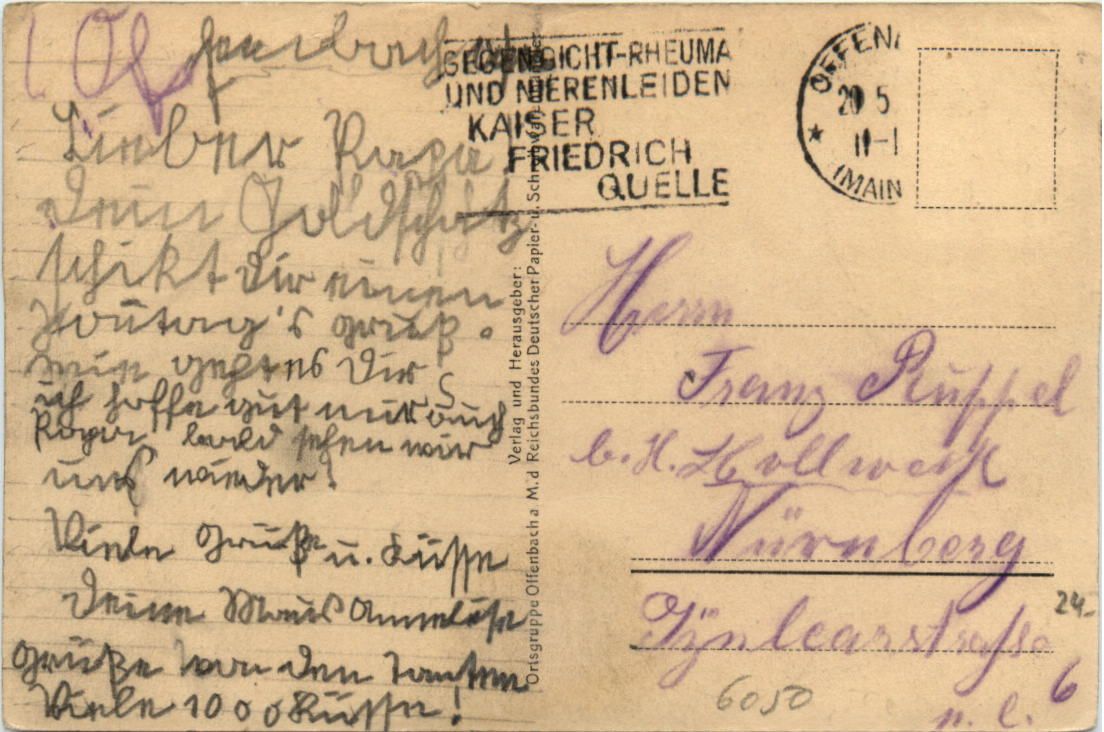 Offenbach
Lieber Papa!
Dein Goldschatz
schikt dir einen
Sontag's gruß.
wie geht es dir
ich hoffe gut mir auch
Papa bald sehen wir
uns wieder!
Viele Grüße u. Küsse
Deine Maus Anneliese
Grüße von den Tanten
Viele 1000 Küsse!
GEGEN GICHT-RHEUMA
UND NIERENLEIDEN
KAISER
FRIEDRICH
QUELLE
OFFEN
20 5
11-1
(MAIN
Verlag und Herausgeber:
Ortsgruppe Offenbach a M. d Reichsbundes Deutscher Papier- u. Schreibwarenhändler
Herrn
Franz Ruppel
b. H. Hollweck
Nürnberg
6
24-
6050